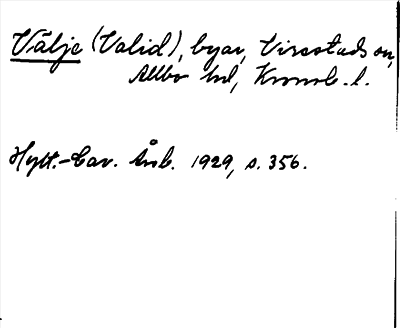 Välje (Valid), byar, Virestads sn,
Allbo hd, Kronob. l.
Hylt.-Cav. Årsb. 1929, s. 356.